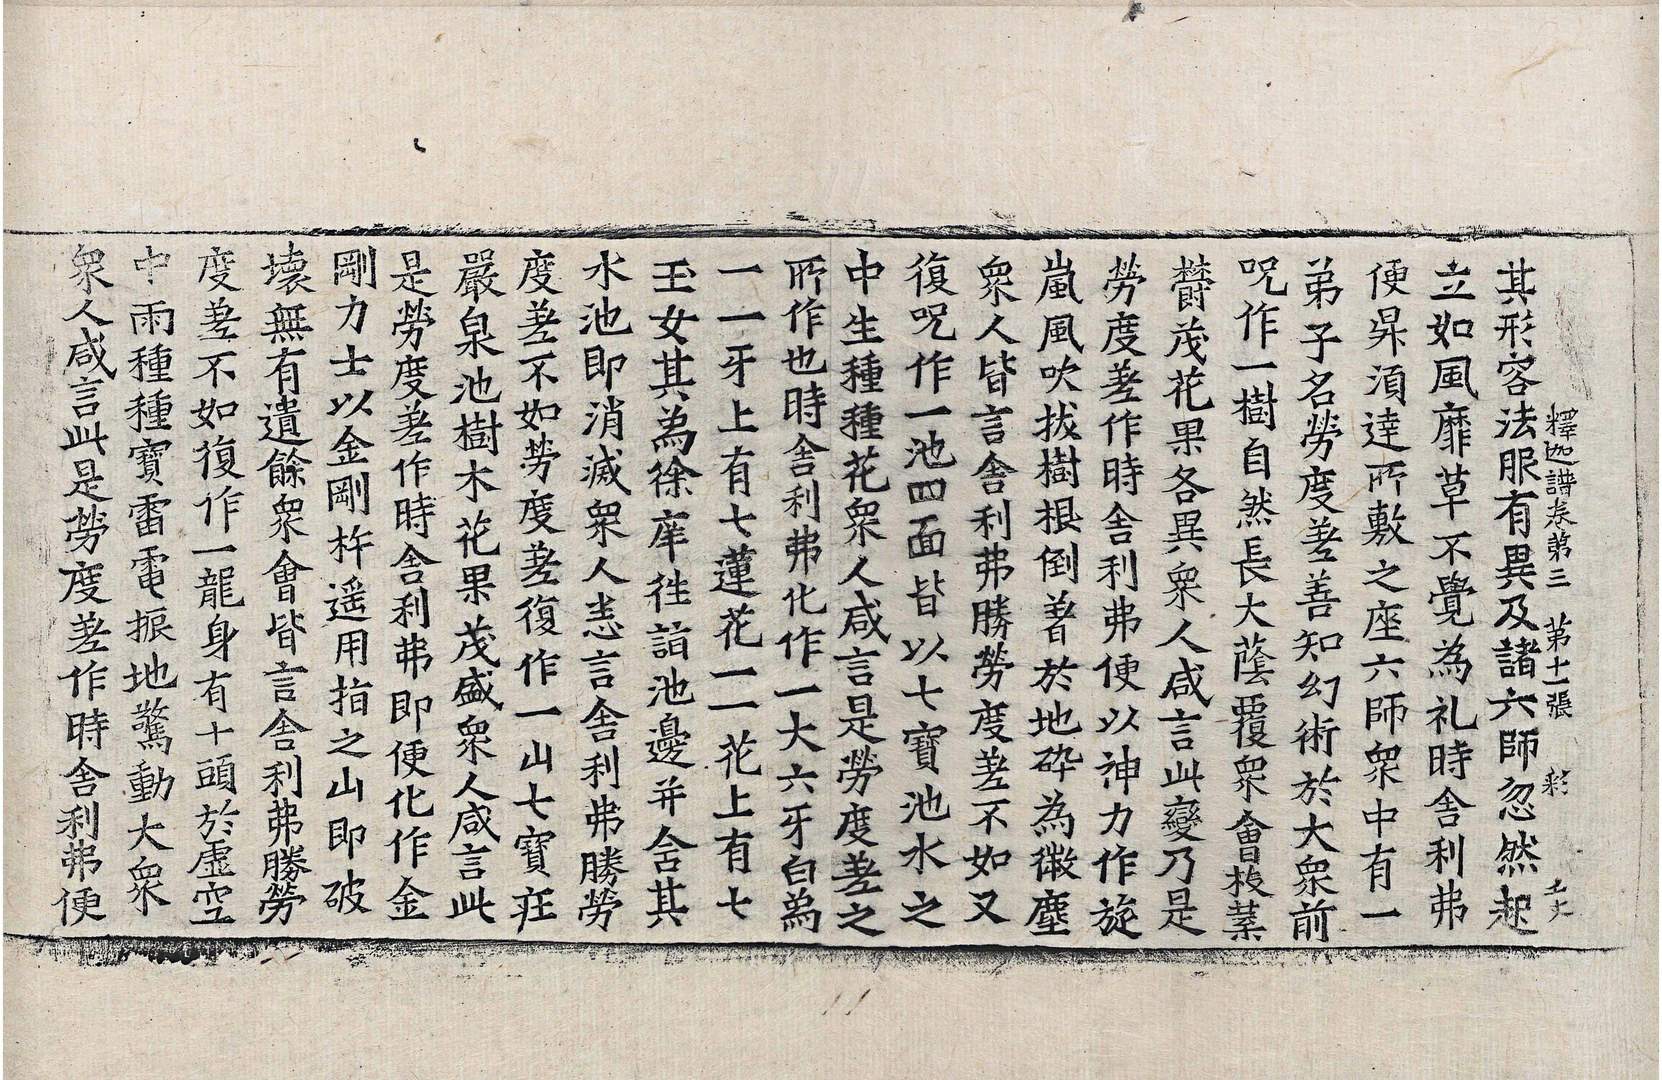 釋迦譜卷第三　第十一張　彩
其形容法服有異及諸六師忽然起
立如風靡草不覺為礼時舍利弗
便昇湏達所敷之座六師衆中有一
弟子名勞度差善知幻術於大衆前
呪作一樹自然長大蔭覆衆會枝葉
欝茂花果各異衆人咸言此變乃是
勞度差作時舍利弗便以神力作旋
嵐風吹拔樹根倒著於地碎為微塵
衆人皆言舍利弗勝勞度差不如又
復呪作一池四面皆以七寶池水之
中生種種花衆人咸言是勞度差之
所作也時舍利弗化作一大六牙白為
一一牙上有七蓮花一一花上有七
玉女其為徐庠往詣池邊并含其
水池即消滅衆人悉言舍利弗勝勞
度差不如勞度差復作一山七寶莊
嚴泉池樹木花果茂盛衆人咸言此
是勞度差作時舍利弗即便化作金
剛力士以金剛杵遥用指之山即破
壞無有遺餘衆會皆言舍利弗勝勞
度差不如復作一龍身有十頭於虚空
中雨種種寶雷電振地驚動大衆
衆人咸言此是勞度差作時舍利弗便